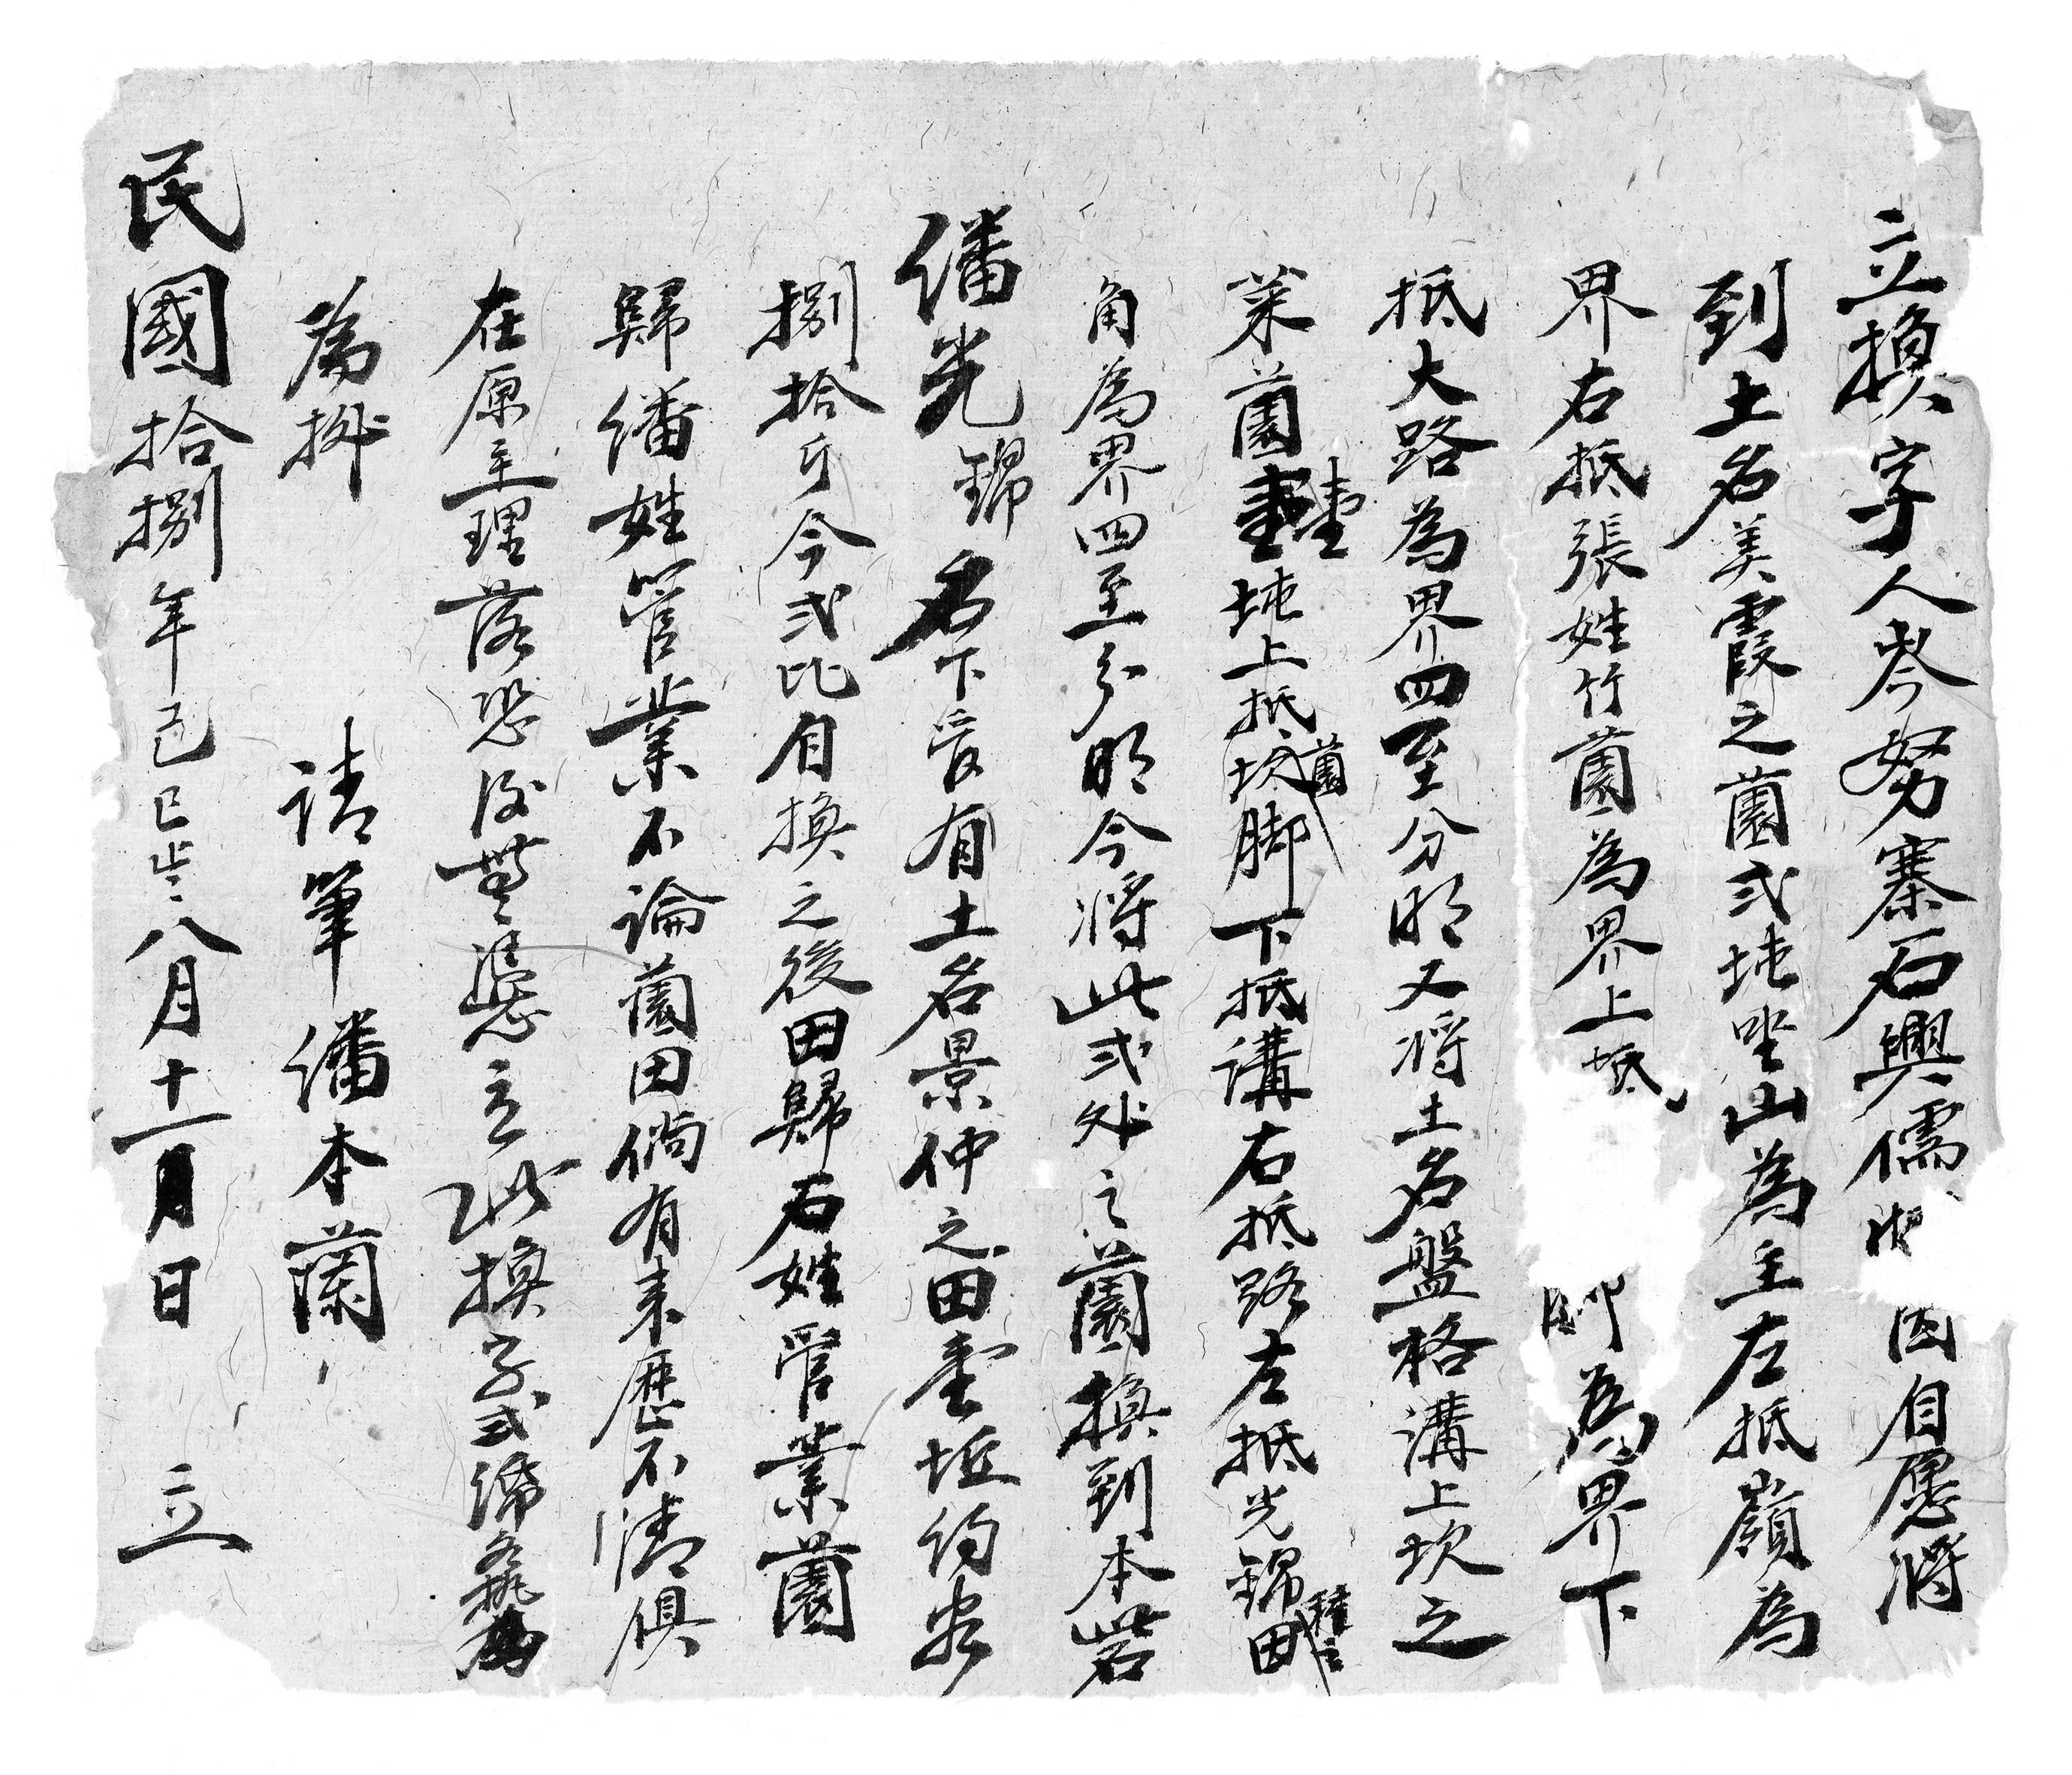 立換字人岑努寨石興儒 因自愿將
到土名美霞之薗弍坉坐山為主左抵嶺為
界右抵張姓竹薗為界上抵 腳為界下
抵大路為界四至分明又將土名盤格溝上坎之
菜薗壹坉上抵薗坎腳下抵溝右抵路左抵光錦田
角為界四至分明今將此弍处之薗換到本岩
潘光錦名下管有土名景仲之田壹坵約谷
捌拾斤今弍比自換之後田歸石姓管業薗
歸潘姓管業不論薗田倘有来歷不清俱
在原主理落恐後無憑立此換字弍紙各執為
為據
請筆潘本蘭
民國拾捌年己巳歲八月十一日 立